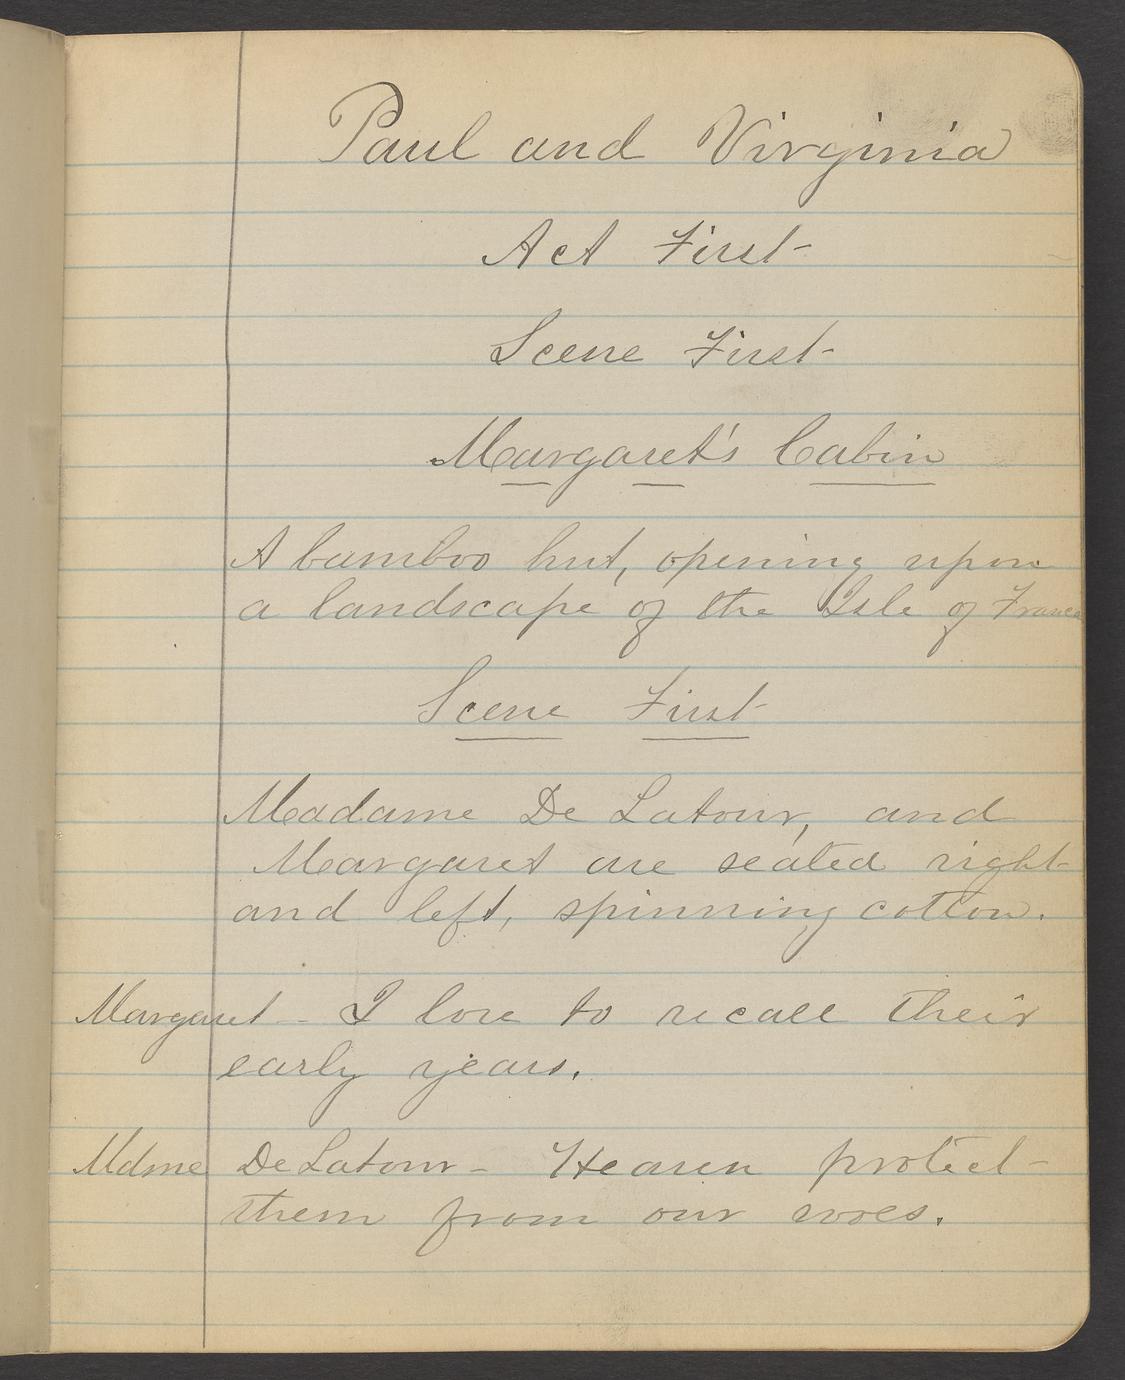 Paul and Virginia
Act First
Scene First
Margaret's Cabin
A bamboo hut, opening upon
a landscape of the Isle of France
Scene First
Madame De Latour, and
Margaret are seated right
and left, spinning cotton.
Margaret - I love to recall their
early years.
Mdme De Latour - Heaven protect
them from our woes.